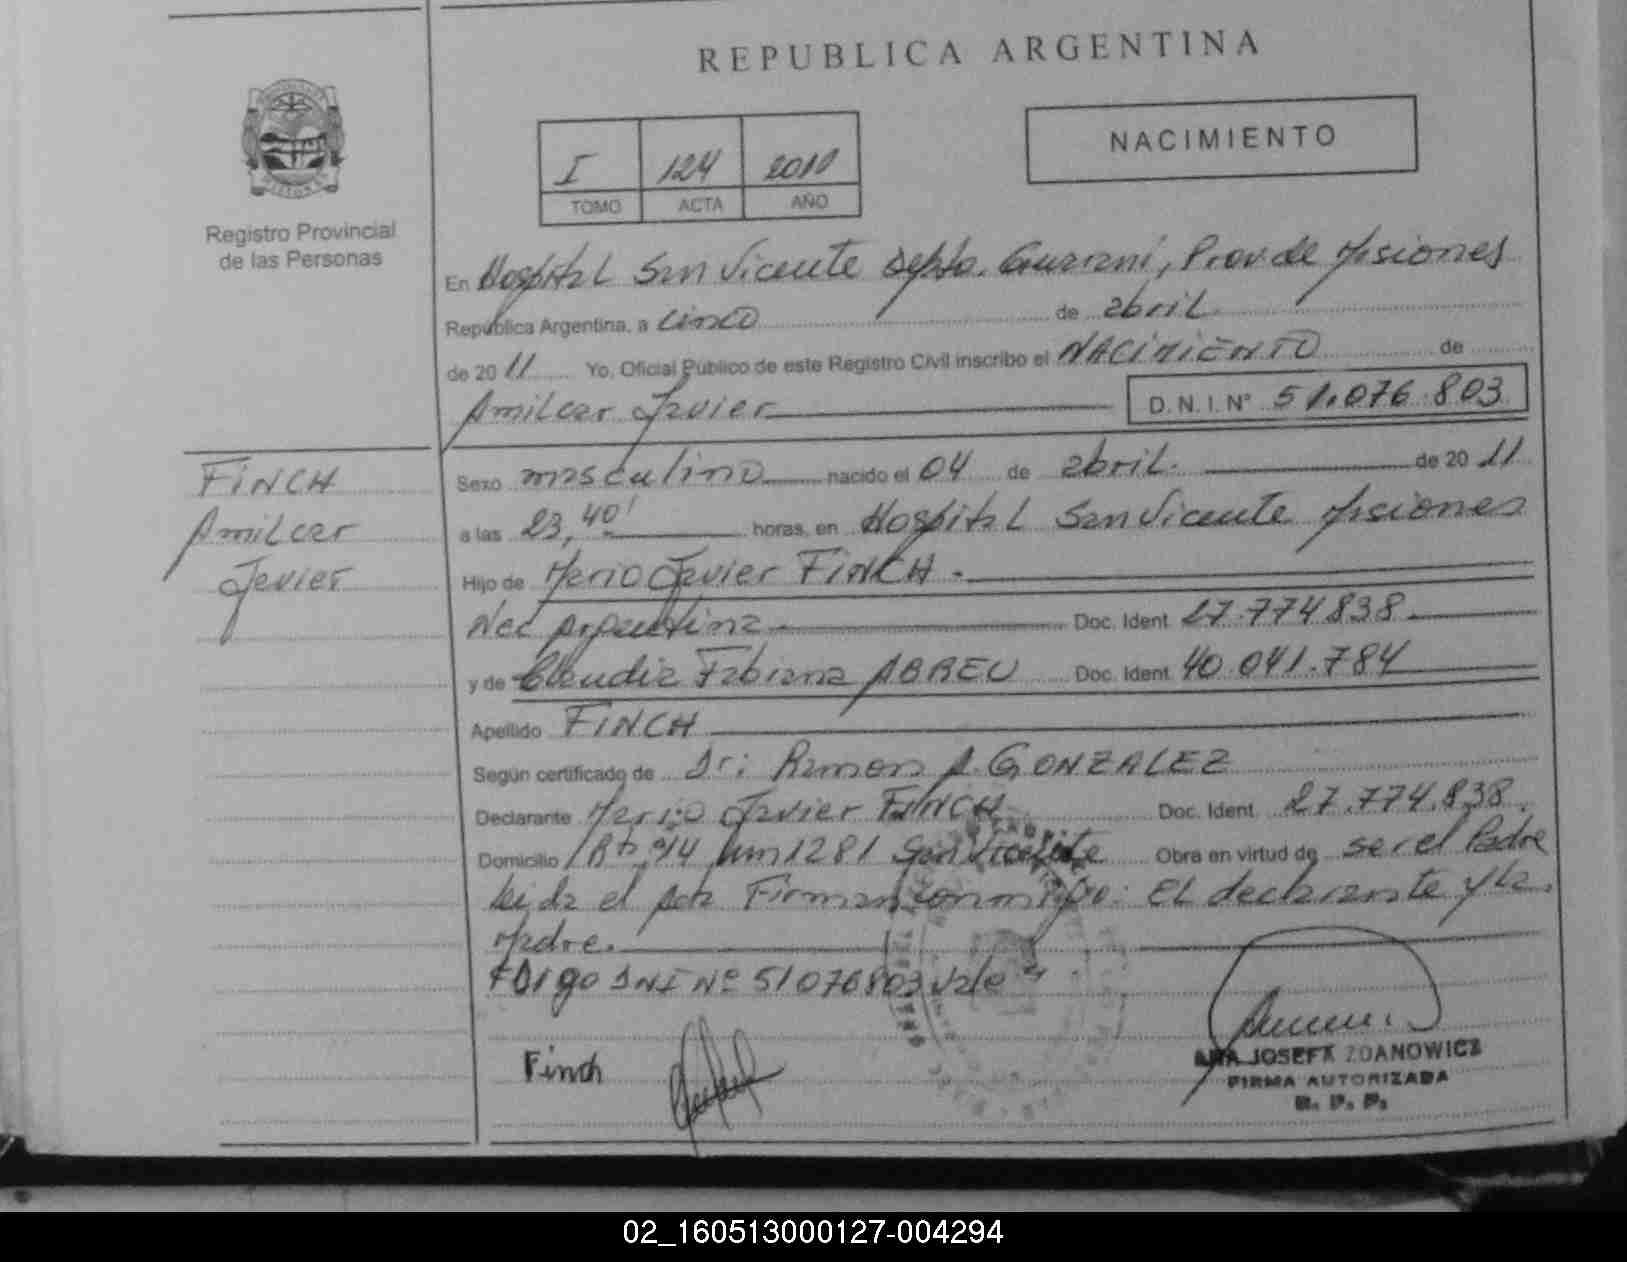 REPUBLICA ARGENTINA
NACIMIENTO
I 124
TOMO ACTA AÑO
Registro Provincial
de las Personas
En Hospital San Vicente Depto. Guarani, Prov de Misiones
República Argentina, a cinco de abril
de 2011 Yo, Oficial Público de este Registro Civil inscribo el NACIMIENTO de
Amilcar Javier D.N.I. Nº 51.076.803
FINCH
Amilcar
Javier
Sexo masculino nacido el 04 de abril. de 2011
a las 23,40' horas, en Hospital San Vicente Misiones
Hijo de Mario Javier FINCH.
Nac Argentina Doc. Ident 27.774.838
y de Claudia Fabiana ABREU Doc. Ident 40.041.784
Apellido FINCH
Según certificado de Dr: Ramon A. GONZALEZ
Declarante Mario Javier FINCH Doc. Ident 27.774.838.
Domicilio Rta 14 km 1281 San Vicente Obra en virtud de ser el Padre
leida el Acta Firman conmigo: El declarante y la
Madre.
DNI Nº 51076803 Vale
Finch
ANA JOSEFA ZDANOWICZ
FIRMA AUTORIZADA
R. P. P.
02_160513000127-004294